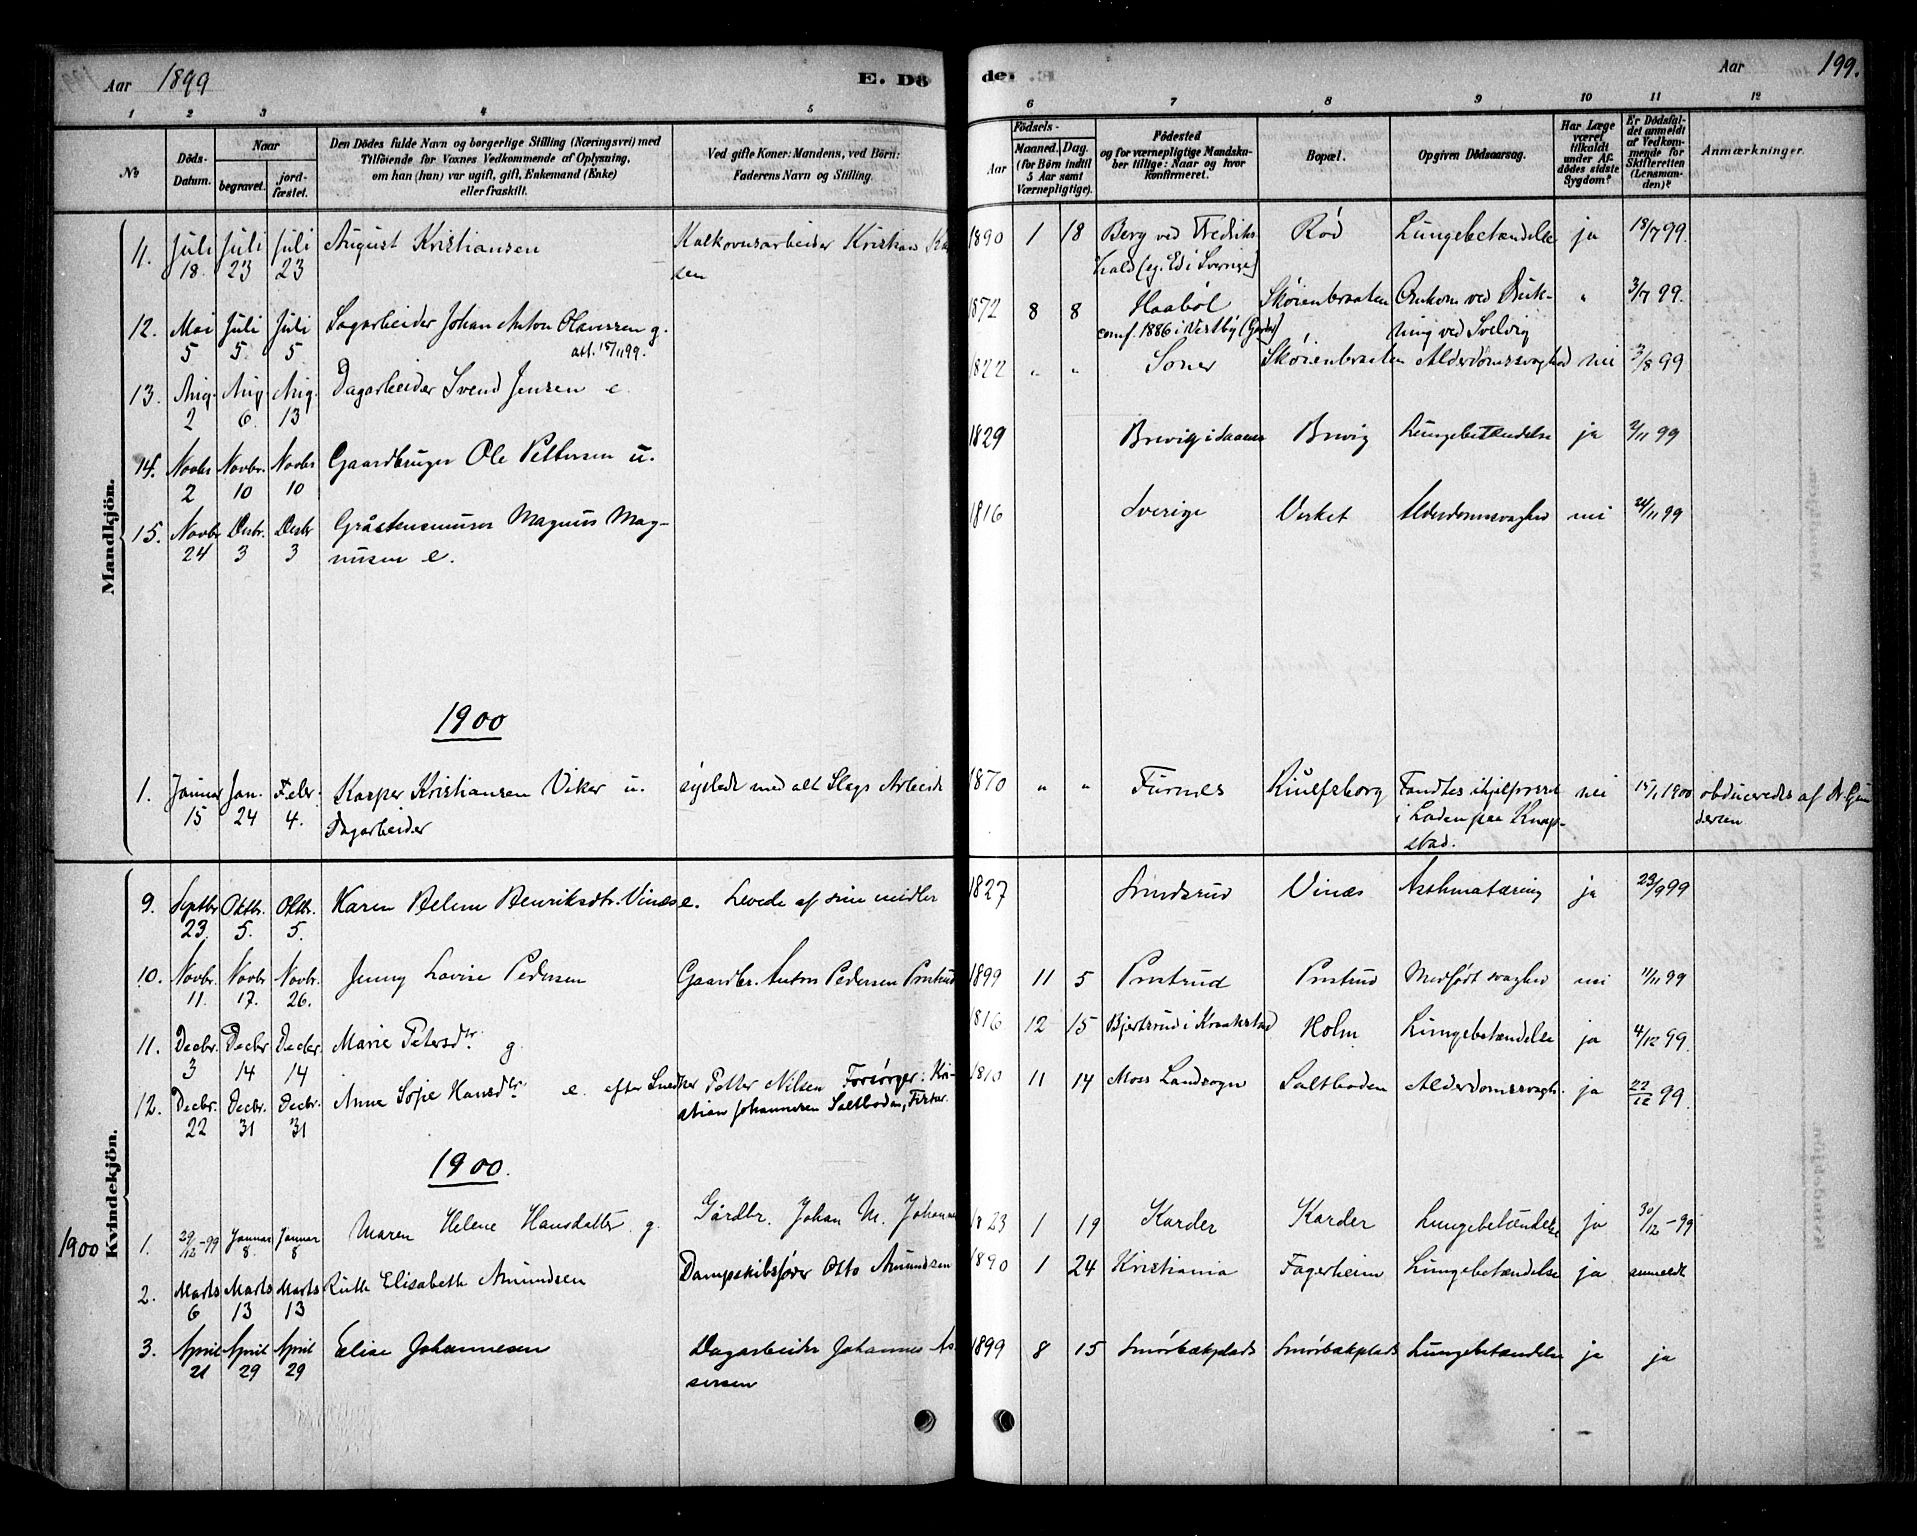 Aar 1899 E. Dö
1 2 3 4 5
№
Döds-
Datum.
Naar
begravet.
jord-
fæstet.
Den Dödes fulde Navn og borgerlige Stilling (Næringsvei) med
Tilföiende for Voxnes Vedkommende af Oplysning,
om han (hun) var ugift, gift, Enkemand (Enke)
eller fraskilt.
Ved gifte Koner: Mandens, ved Börn:
Faderens Navn og Stilling.
de. Aar 199.
6 7 8 9 10 11 12
Aar
Födsels-
Maaned. Dag.
(for Børn indtil
5 Aar samt
Værnepligtige).
Födested
og for værnepligtige Mandska-
ber tillige: Naar og hvor
Konfirmeret.
Bopæl.
Opgiven Dödsaarsag.
Har Læge
været
tilkaldt
under Af-
dödes sidste
Sygdom?
Er Dödsfal-
det anmeldt
af Vedkom-
mende for
Skifteretten
(Lensman-
den)?
Anmærkninger.
Mandkjön.
11. Juli 18. Juli 23 Juli 23 August Kristiansen Kalkovnsarbeider Kristian
sen
1890 1 18 Berg ved Fredriks-
hald (eg. Ed i Sverige) Rød Lungebetændelse ja 18/7 99.
12. Mai 5 Juli 5. Juli 5 Sagarbeider Johan Anton Olavessen g.
att. 15/11 99.
1872 8 8 Haabøl
conf. 1886 i Vestby Skøienbraaten Omkom ved Druk-
ning ved Svelvig " 3/7 99.
13. Aug. 2 Aug 6. Aug. 13 Dagarbeider Svend Jensen e
1822 " " Soner Skøienbraaten Alderdomssvaghed nei 3/8 99
14. Novbr 2 Novbr. 10 Novbr 10 Gaardbruger Ole Pettersen u.
1829 Brevig i Brevig Lungebetændelse ja 2/11 99
15. Novbr 24 Desbr. 3 Desbr 3 Gråstensmurer Magnus Mag-
nusen e.
1816 Sverige Verket Alderdomssvaghed nei 24/11 99
1900
1. Januar 15 Jan. 24 Febr. 4. Kasper Kristiansen Viker u.
Dagarbeider
sysled med alt Slags Arbeide
1870 " " Furnes Riulfsborg Fandtes ihjelfrosset
i Laden paa Knap-
stad. nei 15/1 1900 obduceredes af Dr Gun
dersen
Kvindekjön.
9. Septbr 23. Oktbr. 5. Oktbr. 5. Karen Helene Henriksdtr. Vinæs e. Levede af sine midler
1827 Smedsrud Vinæs Asthmatæring ja 23/9 99
10. Novbr. 11. Novbr 17. Novbr. 26. Jenny Lovise Pedersen Gaardbr. Anton Pedersen Prestrud
1899 11 5 Prestrud Prestrud Medfødt svaghed nei 11/11 99
11. Decbr. 3 Decbr 14 Decbr. 14 Marie Petersdtr g.
1816 12 15 Bjertsrud i Kraakstad Holm Lungebetændelse ja 4/12 99.
12. Decbr. 22 Decbr. 31 Decbr. 31 Anne Sofie Hansdtr e. efter Snedker Petter Nilsen Forsørger: Kri-
stian Johannesen Saltboden, Fisker
1810 11 14 Moss Landsogn Saltboden Alderdomssvagh. ja 22/12 99.
1900.
1900
1. 29/12-99 Januar 8. Januar 8 Maren Helene Hansdatter g. Gårdbr. Johan M. Johannes
1823 1 19 Karder Karder Lungebetændelse ja 30/12-99
2. Marts 6 Marts 13 Marts 13 Ruth Elisabeth Amundsen Dampskibsfører Otto Amundsen
1890 1 24 Kristiania Fagerheim Lungebetændelse ja anmeldt
3. April 21 April 29 April 29 Elise Johannesen Dagarbeider Johannes As-
sersen
1899 8 15 Smørbækplads Smørbækplads Lungebetændelse ja ja